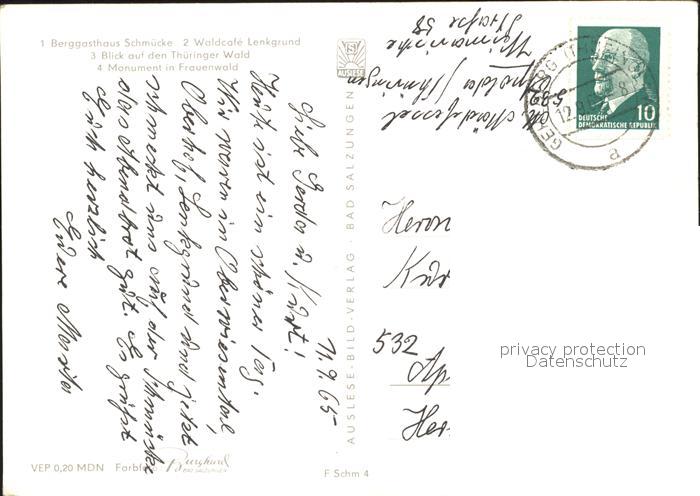 1 Berggasthaus Schmücke 2 Waldcafé Lenkgrund
3 Blick auf den Thüringer Wald
4 Monument in Frauenwald
11.9.65
Liebe Gerda u. Kurt!
Heute ist ein schöner Tag.
Wir waren in Oberwiesental,
Oberhof, Lenkgrund und jetzt
schmeckt uns auf der Schmücke
das Abendbrot gut. Es grüßt
Euch herzlich
Eure
VEP 0,20 MDN Farbfoto: Burghard
BAD SALZUNGEN
F Schm 4
AUSLESE-BILD-VERLAG · BAD SALZUNGEN
AUSLESE
Apolda/Thüringen
Straße 58
DEUTSCHE
DEMOKRATISCHE REPUBLIK
10
a
Herrn
Kur
532 Ap
Her
privacy protection
Datenschutz